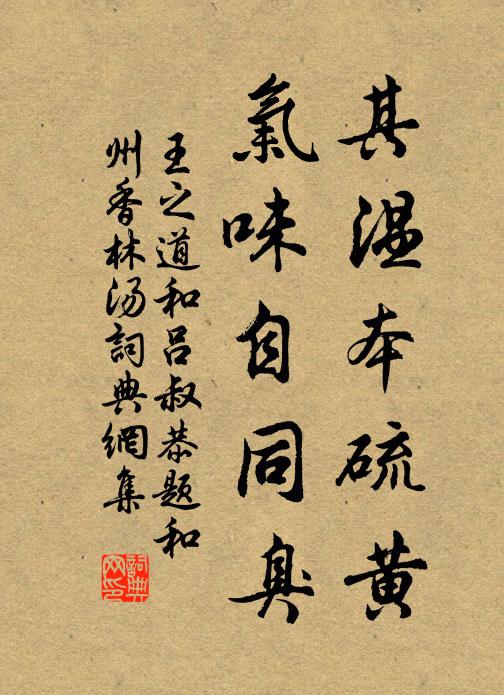 其温本硫黄
氣味自同臭
王之道和吕叔恭题和
州香林汤詞典網集
詞典
网印